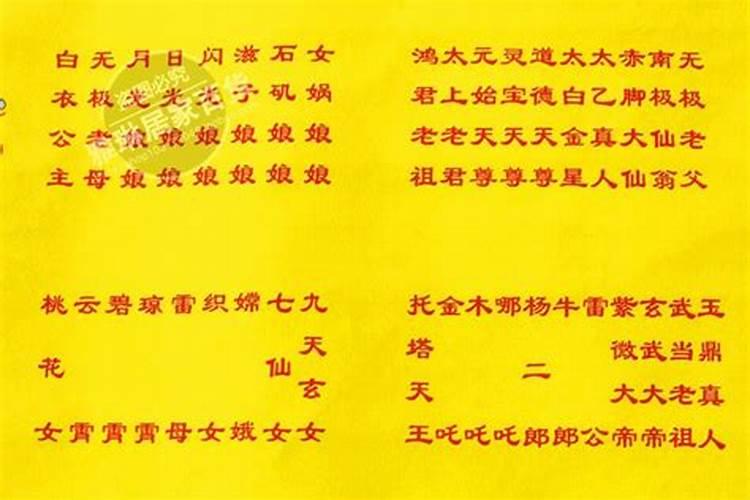 无极老父
南极仙翁
赤脚大仙
太乙真人
太白金星
道德天尊
灵宝天尊
元始天尊
太上老君
鸿君老祖
女娲娘娘
石矶娘娘
滋子娘娘
闪光娘娘
日光娘娘
月光娘娘
无极老母
白衣公主
玉鼎真人
武当老祖
玄武大帝
紫微大帝
雷公
牛郎
杨二郎
哪吒
木吒
金吒
托塔天王
九天玄女
七仙女
嫦娥
织女
雷母
琼霄
碧霄
云霄
桃花女
盗图必究
居家百货